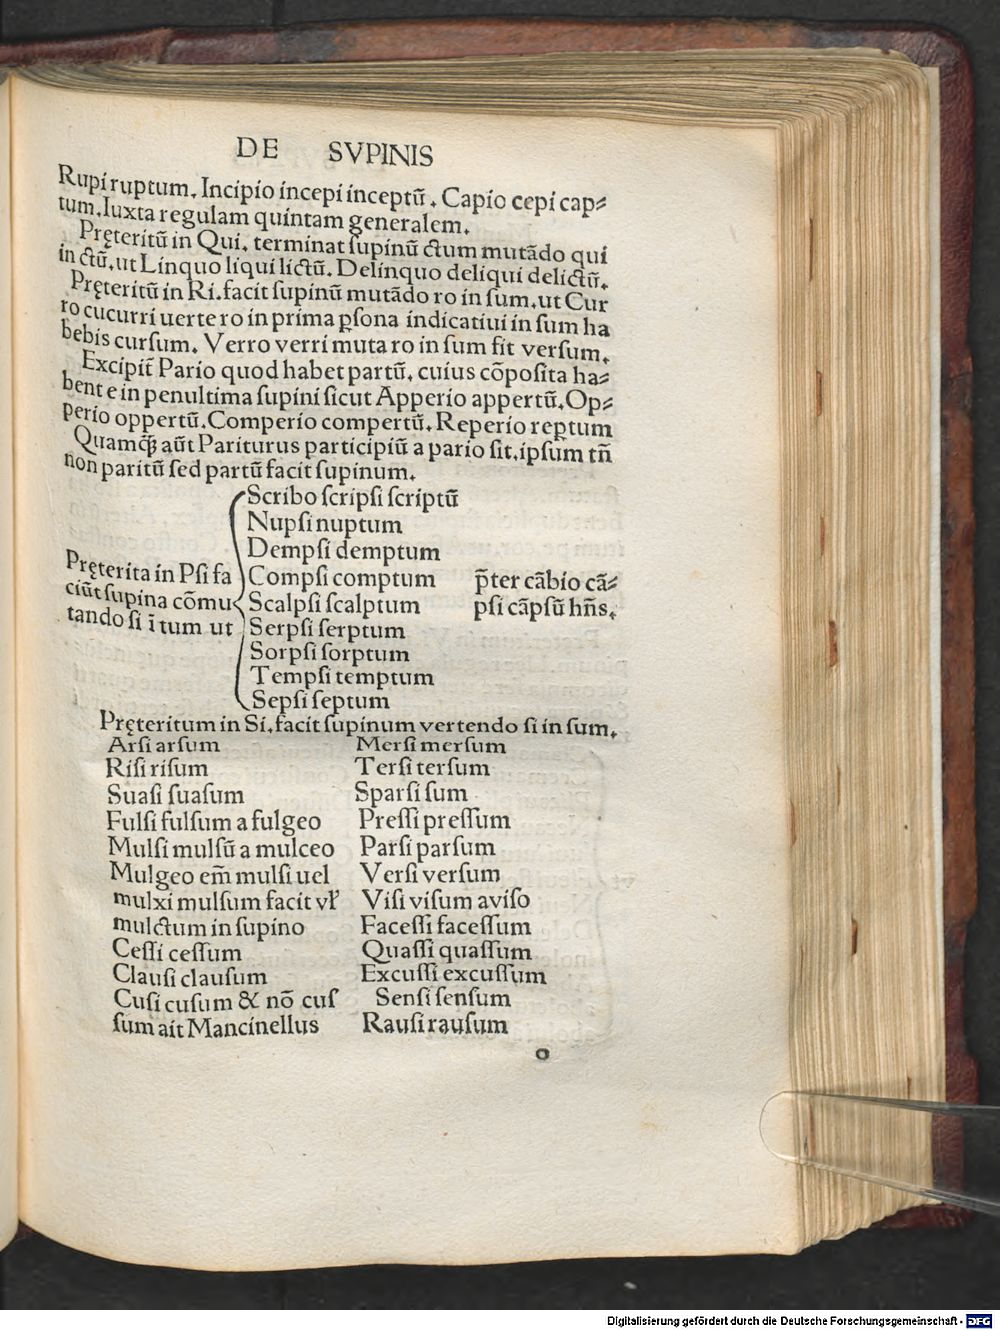 DE SVPINIS
Rupi ruptum. Incipio incepi inceptū. Capio cepi cap⸗
tum. Iuxta regulam quintam generalem.
Pręteritū in Qui. terminat supinū ctum mutādo qui
in ctū. ut Linquo liqui lictū. Delinquo deliqui delictū.
Pręteritū in Ri. facit supinū mutādo ro in sum. ut Cur
ro cucurri uerte ro in prima ꝑsona indicatiui in sum ha
bebis cursum. Verro verri muta ro in sum fit versum.
Excipit̄ Pario quod habet partū. cuius cōposita ha⸗
bent e in penultima supini sicut Apperio appertū. Op⸗
perio oppertū. Comperio compertū. Reperio reptum
Quamꝙ̄ aūt Pariturus participiū a pario sit. ipsum tñ
non paritū sed partū facit supinum.
Pręterita in Psi fa
ciūt supina cōmu
tando si ī tum ut
Scribo scripsi scriptū
Nupsi nuptum
Dempsi demptum
Compsi comptum p̄ter cābio cā⸗
Scalpsi scalptum psi cāpsū hñs.
Serpsi serptum
Sorpsi sorptum
Tempsi temptum
Sepsi septum
Pręteritum in Si. facit supinum vertendo si in sum.
Arsi arsum
Risi risum
Suasi suasum
Fulsi fulsum a fulgeo
Mulsi mulsū a mulceo
Mulgeo em̄ mulsi uel
mulxi mulsum facit vł
mulctum in supino
Cessi cessum
Clausi clausum
Cusi cusum & nō cus
sum ait Mancinellus
Mersi mersum
Tersi tersum
Sparsi sum
Pressi pressum
Parsi parsum
Versi versum
Visi visum aviso
Facessi facessum
Quassi quassum
Excussi excussum
Sensi sensum
Rausi rausum
o
Digitalisierung gefördert durch die Deutsche Forschungsgemeinschaft - DFG